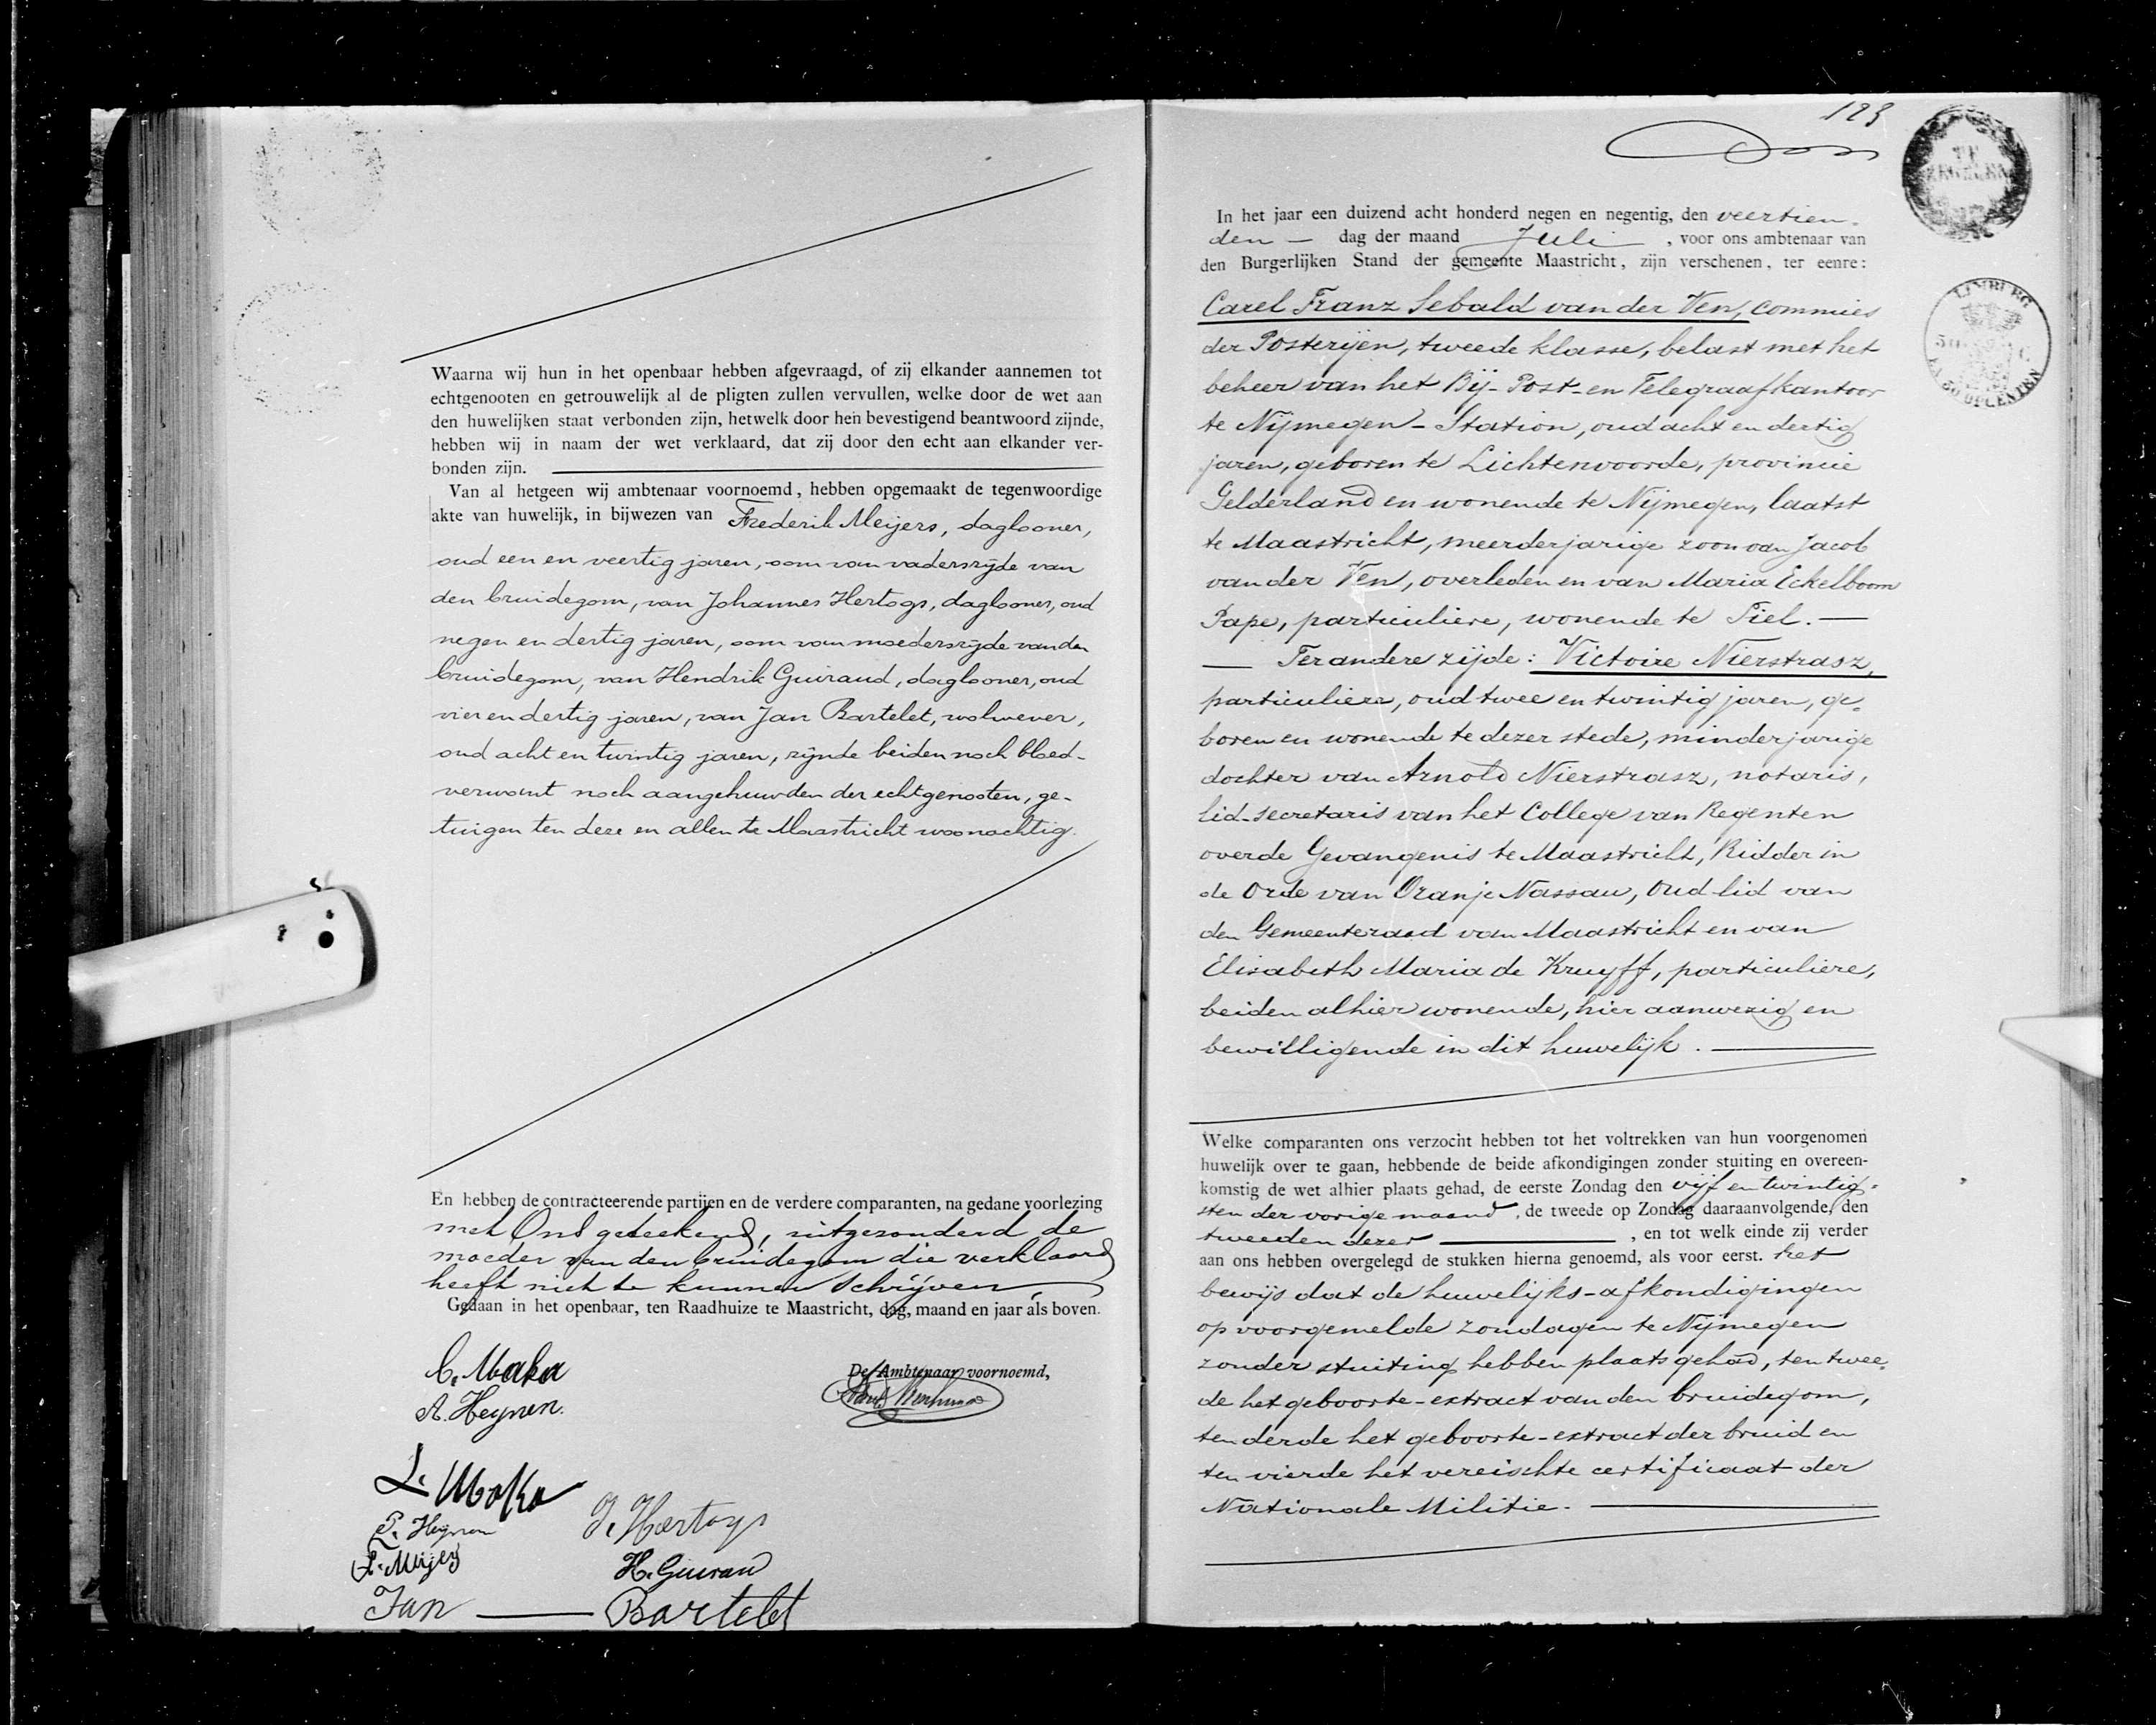 Waarna wij hun in het openbaar hebben afgevraagd, of zij elkander aannemen tot
echtgenooten en getrouwelijk al de pligten zullen vervullen, welke door de wet aan
den huwelijken staat verbonden zijn, hetwelk door hen bevestigend beantwoord zijnde,
hebben wij in naam der wet verklaard, dat zij door den echt aan elkander ver-
bonden zijn.
Van al hetgeen wij ambtenaar voornoemd, hebben opgemaakt de tegenwoordige
akte van huwelijk, in bijwezen van Frederik Meijers, daglooner,
oud een en veertig jaren, oom van vaderszijde van
den bruidegom, van Johannes Hertogs, daglooner, oud
negen en dertig jaren, oom van moederszijde van den
bruidegom, van Hendrik Guiraud, daglooner, oud
vier en dertig jaren, van Jan Bartelet, wolwever,
oud acht en twintig jaren, zijnde beiden noch bloed-
verwant noch aangehuwden der echtgenooten, ge-
tuigen ten deze en allen te Maastricht woonachtig.
En hebben de contracteerende partijen en de verdere comparanten, na gedane voorlezing
met Ons geteekend, uitgezonderd de
moeder van den bruidegom die verklaard
heeft niet te kunnen schrijven
Gedaan in het openbaar, ten Raadhuize te Maastricht, dag, maand en jaar als boven.
De Ambtenaar voornoemd,
C. Maka
A. Heynen.
L. Moka
P. Heynen
J. Hertogs
F. Mijers
H. Guirau
Jan Bartelet
123
TE ZEGELEN
In het jaar een duizend acht honderd negen en negentig, den veertien-
den dag der maand Juli, voor ons ambtenaar van
den Burgerlijken Stand der gemeente Maastricht, zijn verschenen, ter eenre:
LIMBURG
Carel Franz Sebald van der Ven, commies
der Posterijen, tweede klasse, belast met het
beheer van het Bij-Post- en Telegraafkantoor
te Nijmegen-Station, oud acht en dertig
jaren, geboren te Lichtenvoorde, provincie
Gelderland en wonende te Nijmegen, laatst
te Maastricht, meerderjarige zoon van Jacob
van der Ven, overleden en van Maria Eckelboom
Pape, particuliere, wonende te Tiel.
Ter andere zijde: Victoire Nierstrasz,
particuliere, oud twee en twintig jaren, ge-
boren en wonende te dezer stede, minderjarige
dochter van Arnold Nierstrasz, notaris,
lid-secretaris van het College van Regenten
over de Gevangenis te Maastricht, Ridder in
de Orde van Oranje Nassau, Oud-lid van
den Gemeenteraad van Maastricht en van
Elisabeth Maria de Kruyff, particuliere,
beiden alhier wonende, hier aanwezig en
bewilligende in dit huwelijk.
Welke comparanten ons verzocht hebben tot het voltrekken van hun voorgenomen
huwelijk over te gaan, hebbende de beide afkondigingen zonder stuiting en overeen-
komstig de wet alhier plaats gehad, de eerste Zondag den vijf en twintig-
sten der vorige maand, de tweede op Zondag daaraanvolgende, den
tweeden dezer, en tot welk einde zij verder
aan ons hebben overgelegd de stukken hierna genoemd, als voor eerst. het
bewijs dat de huwelijks-afkondigingen
op voorgemelde zondagen te Nijmegen
zonder stuiting hebben plaats gehad, ten twee-
de het geboorte-extract van den bruidegom,
ten derde het geboorte-extract der bruid en
ten vierde het vereischte certificaat der
Nationale Militie.